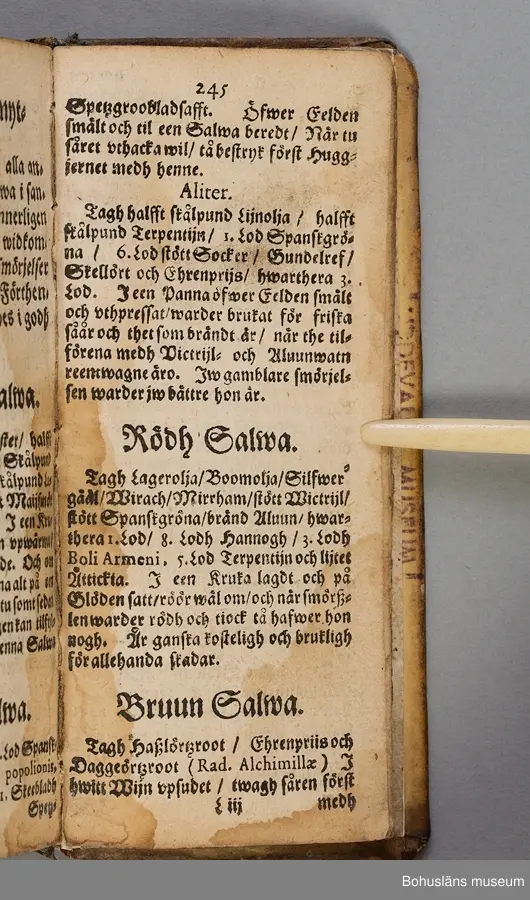 245
Spetzgroobladsafft. Öfwer Eelden
smält och til een Salwa beredt / När tu
såret vthacka wil / tå bestryk först Hugg-
jernet medh henne.
Aliter.
Tagh halfft skålpund Lijnolja / halfft
skålpund Terpentijn / 1. Lod Spanskgrö-
na / 6. Lod stött Socker / Gundelref /
Skellört och Ehrenprijs / hwarthera 3.
Lod. I een Panna öfwer Eelden smält
och vthpressat / warder brukat för friska
såår och thet som brändt är / när the til-
förena medh Victrijl- och Aluunwatn
reentwagne äro. Jw gamblare smörjel-
sen warder jw bättre hon är.
Rödh Salwa.
Tagh Lagerolja / Boomolja / Silfwer-
gädl / Wirach / Mirrham / stött Wictrijl /
stött Spanskgröna / bränd Aluun / hwar-
thera 1. Lod / 8. Lodh Hannogh / 3. Lodh
Boli Armeni, 5. Lod Terpentijn och lijtet
Ättickta. I een Kruka lagdt och på
Glöden satt / röör wäl om / och när smörß-
len warder rödh och tiock tå hafwer hon
nogh. Är ganska kosteligh och brukligh
för allehanda skadar.
Bruun Salwa.
Tagh Haßlörtzroot / Ehrenpriis och
Daggeörtzroot (Rad. Alchimillæ) I
hwitt Wijn vpsudet / twagh såren först
L iij medh
alla an-
wa i san-
nnerligen
widkom-
smörjelser
Förthen-
es i godh
alwa.
halff
Skålpund
Maijsmör
popolionis,
Skeebladh
Spetz-
MUSEUM
Bohusläns museum